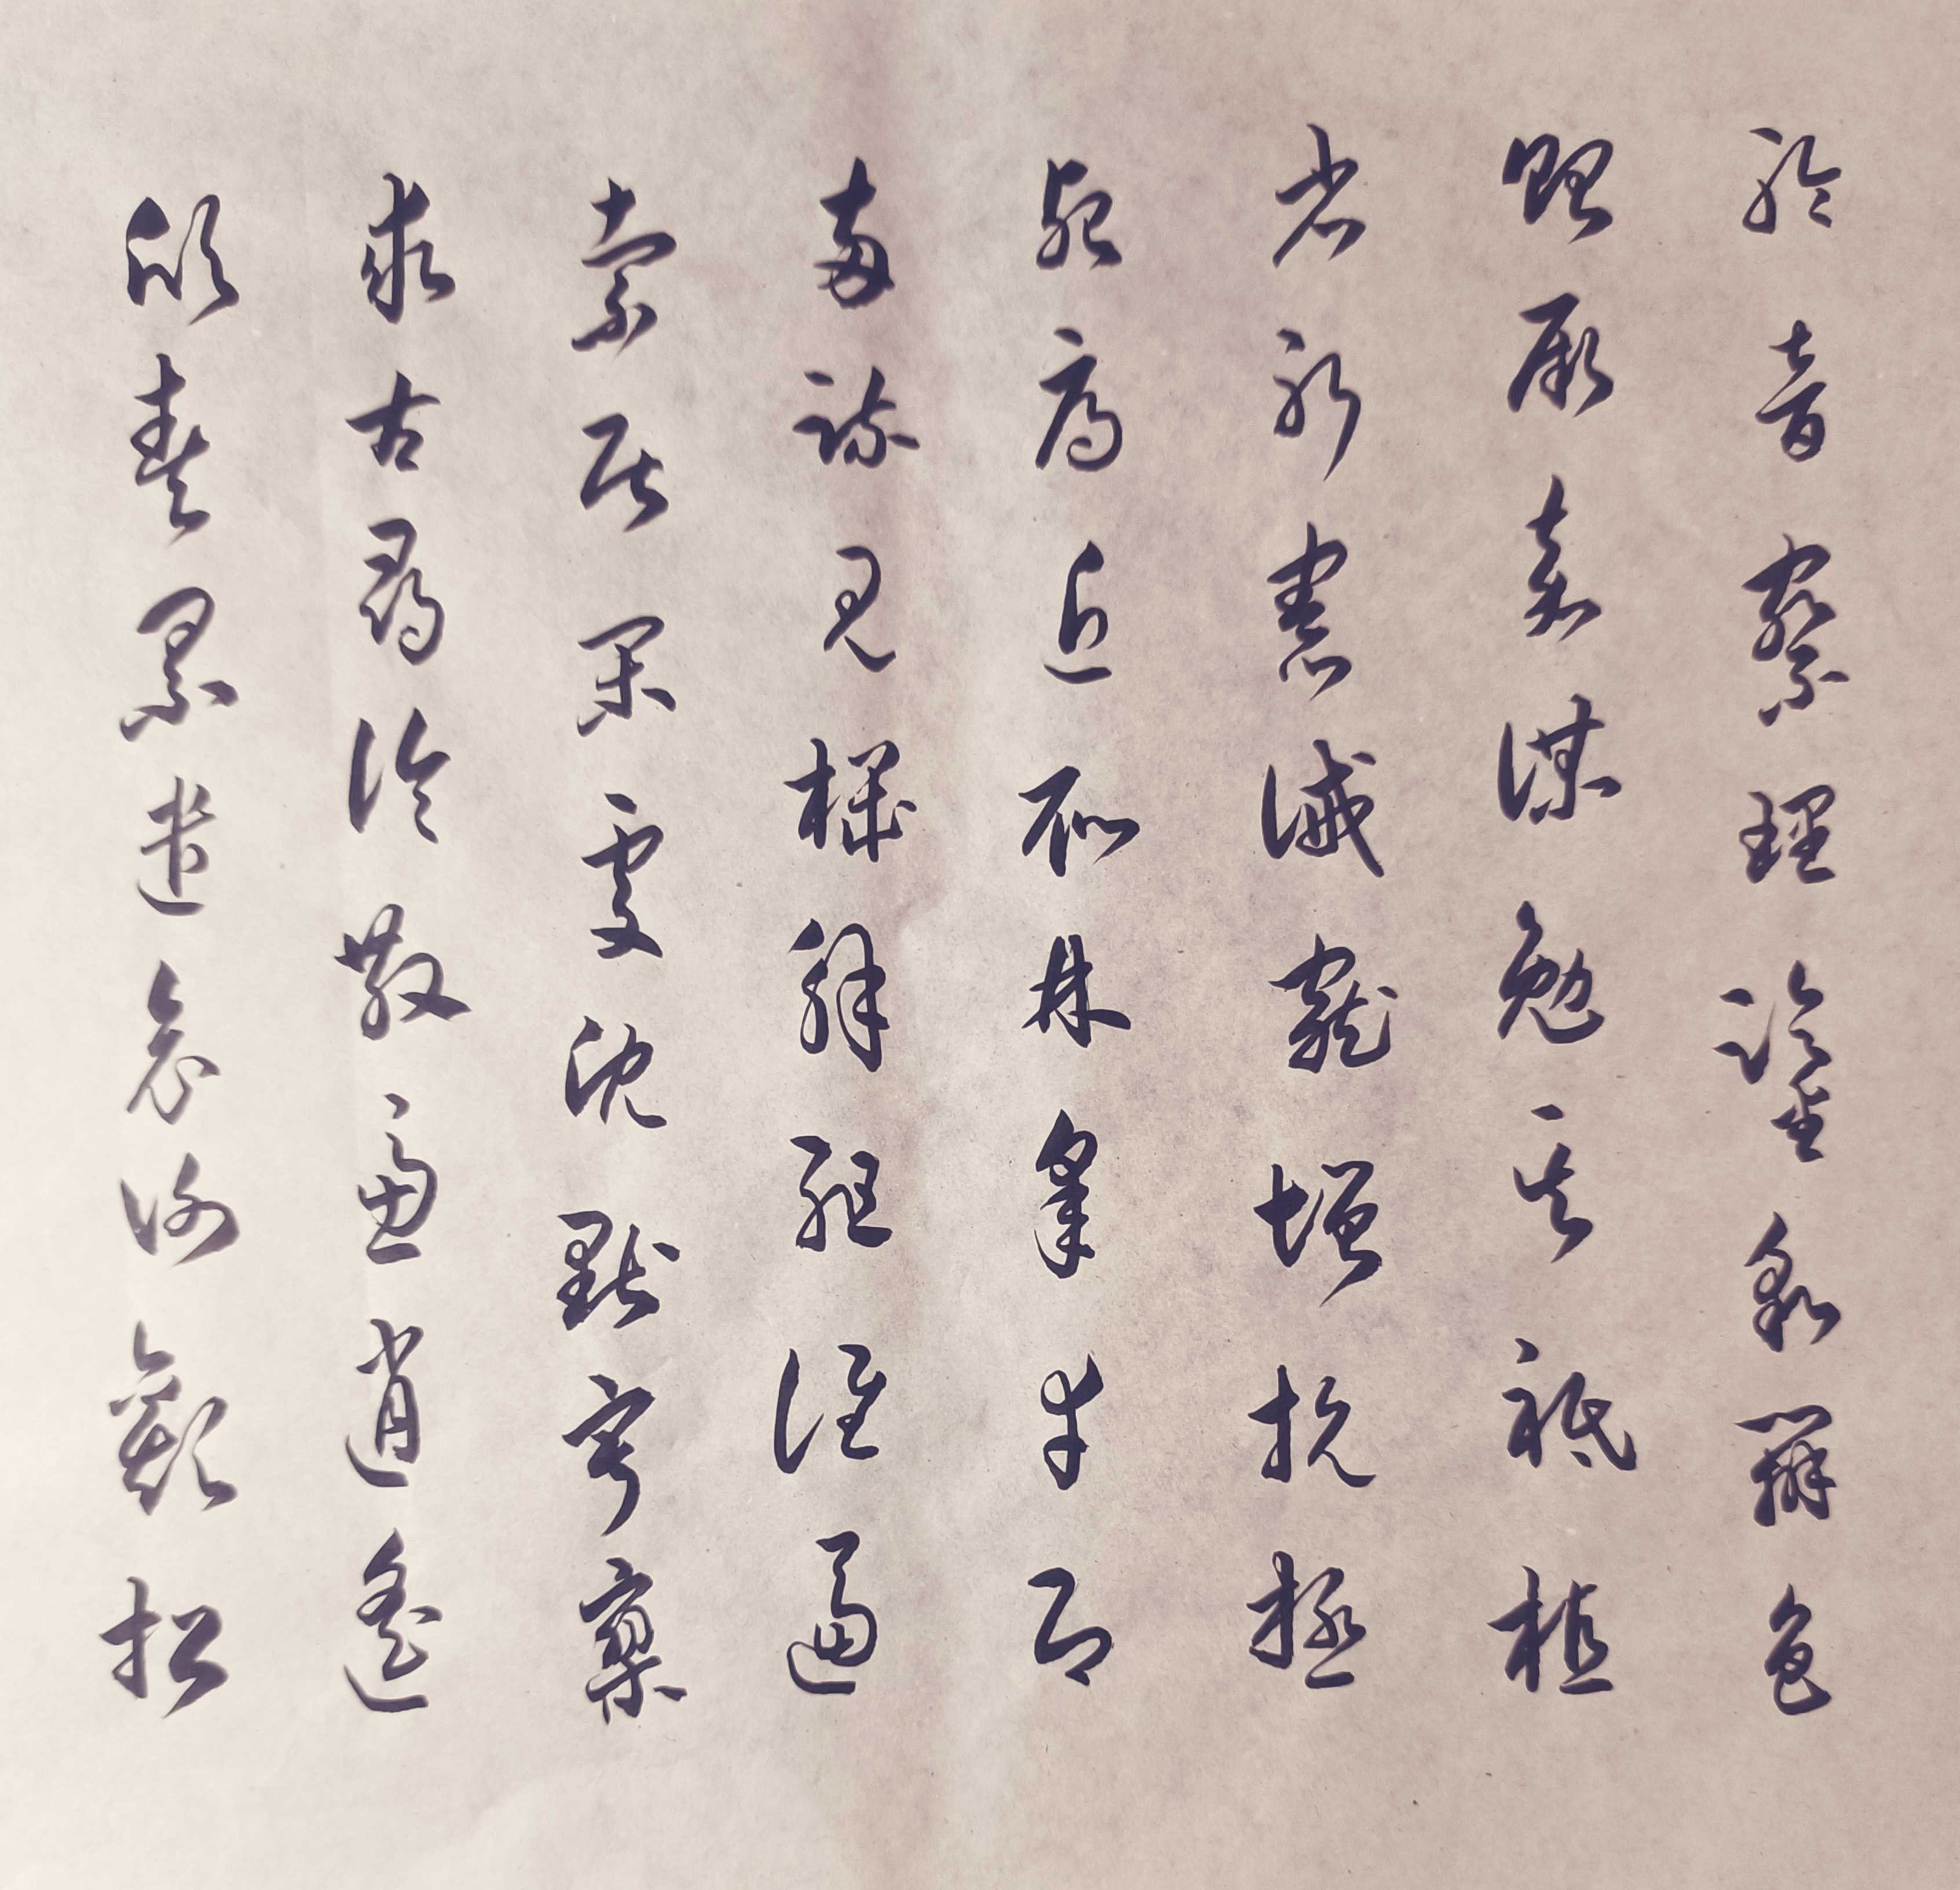 聆音察理鑒貌辨色
貽厥嘉謀勉其祗植
省躬誡寵增抗極
殆辱近恥林皋幸即
兩疏見機解組誰逼
索居閑處沈默寂寥
求古尋論散慮逍遙
欣奏累遣哀謝歡招